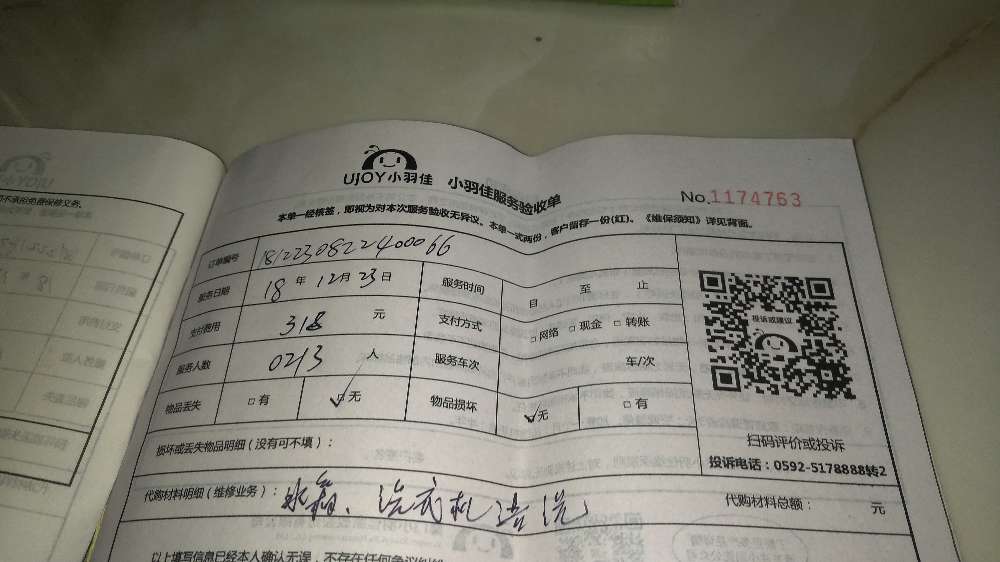 UJOY小羽佳 小羽佳服务验收单
No.1174763
本单一经核签，即视为对本次服务验收无异议。本单一式两份，客户留存一份(红)。《维保须知》详见背面。
订单编号 181223082240066
服务日期 18 年 12 月 23 日 服务时间 自 至 止
支付费用 318 元 支付方式 □网络 □现金 □转账
服务人数 0213 人 服务车次 车/次
物品丢失 □有 □无 物品损坏 □无 □有
投诉或建议
扫码评价或投诉
投诉电话：0592-5178888转2
损坏或丢失物品明细（没有可不填）：
代购材料明细（维修业务）：冰箱、洗衣机清洗 代购材料总额： 元
以上填写信息已经本人确认无误，不存在任何争议纠纷